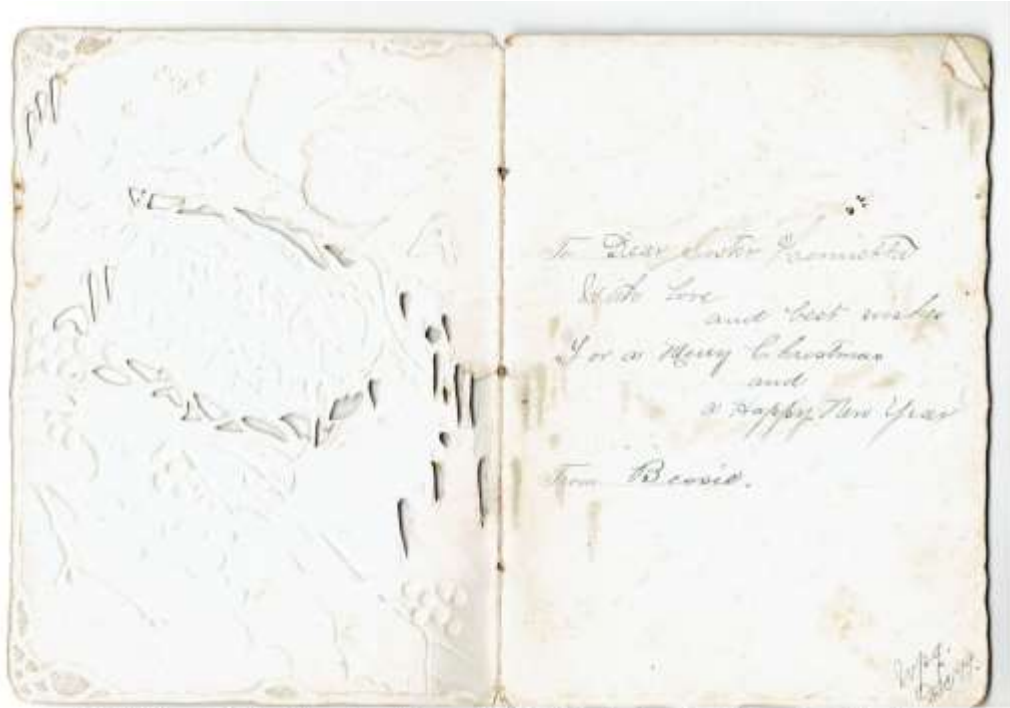 To Dear Sister
With love
and best wishes
For a Merry Christmas
and
a Happy New Year
From Bessie.
Wpg.